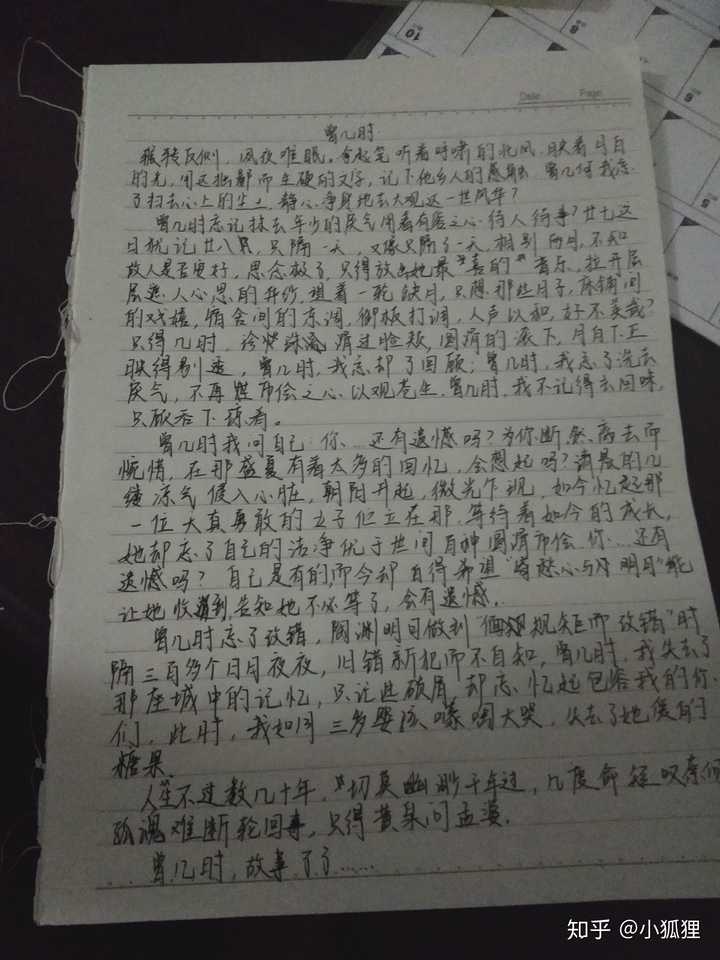 Date Page
曾几时
辗转反侧，夙夜难眠。拿起笔听着呼啸的北风，映着月白
的光，用这拙鄙而生硬的文字，记下他乡人的感触。曾几何我忘
了扫去心上的尘土，静心净身地去大观这一世风华？
曾几时忘记抹去年少的戾气用着有害之心待人待事？廿七这
日就记廿八，只隔一天，又像只隔了一天，相别两月，不知
故人是否更好，思念极了，只得放出她最"喜的"音乐，拉开层
层思人心思的，望着一轮缺月，只想那些日子，间
的戏嬉，宿舍间的东调，御板打调，人声以和，好不美哉？
只得几时，滑过脸颊，圆滑的滚下，月白下正
映得剔透，曾几时，我忘却了回顾；曾几时，我忘了洗去
戾气，不再市侩之心以观苍生，曾几时，我不记得去回味，
只敢吞下续着。
曾几时我问自己 你……还有遗憾吗？为你断然离去而
惋惜，在那盛夏有着太多的回忆，会想起吗？清晨的几
缕凉气侵入心脏，朝阳升起，微光乍现，如今忆起那
一位大真勇敢的女子伫立在那，等待着如今的成长，
她却忘了自己的洁净优于世间百种圆滑市侩 你……还有
遗憾吗？自己是有的而今却自得希道"寄愁心与明月"能
让她收到，告知她不必等了，会有遗憾。
曾几时忘了改错，陶渊明日做到"规矩而改错"时
隔三百多个日日夜夜，旧错新犯而不自知，曾几时，我失去了
那座城中的记忆，只记进破眉，却忘忆起包容我的你
们，此时，我如同三岁婴孩，嚎啕大哭，失去了她缓的
糖果。
人生不过数几十年，切莫幽渺千年过，几度命轻叹奈何
孤魂难断轮回事，只得黄泉问孟婆。
曾几时，故事了了……
知乎 @小狐狸